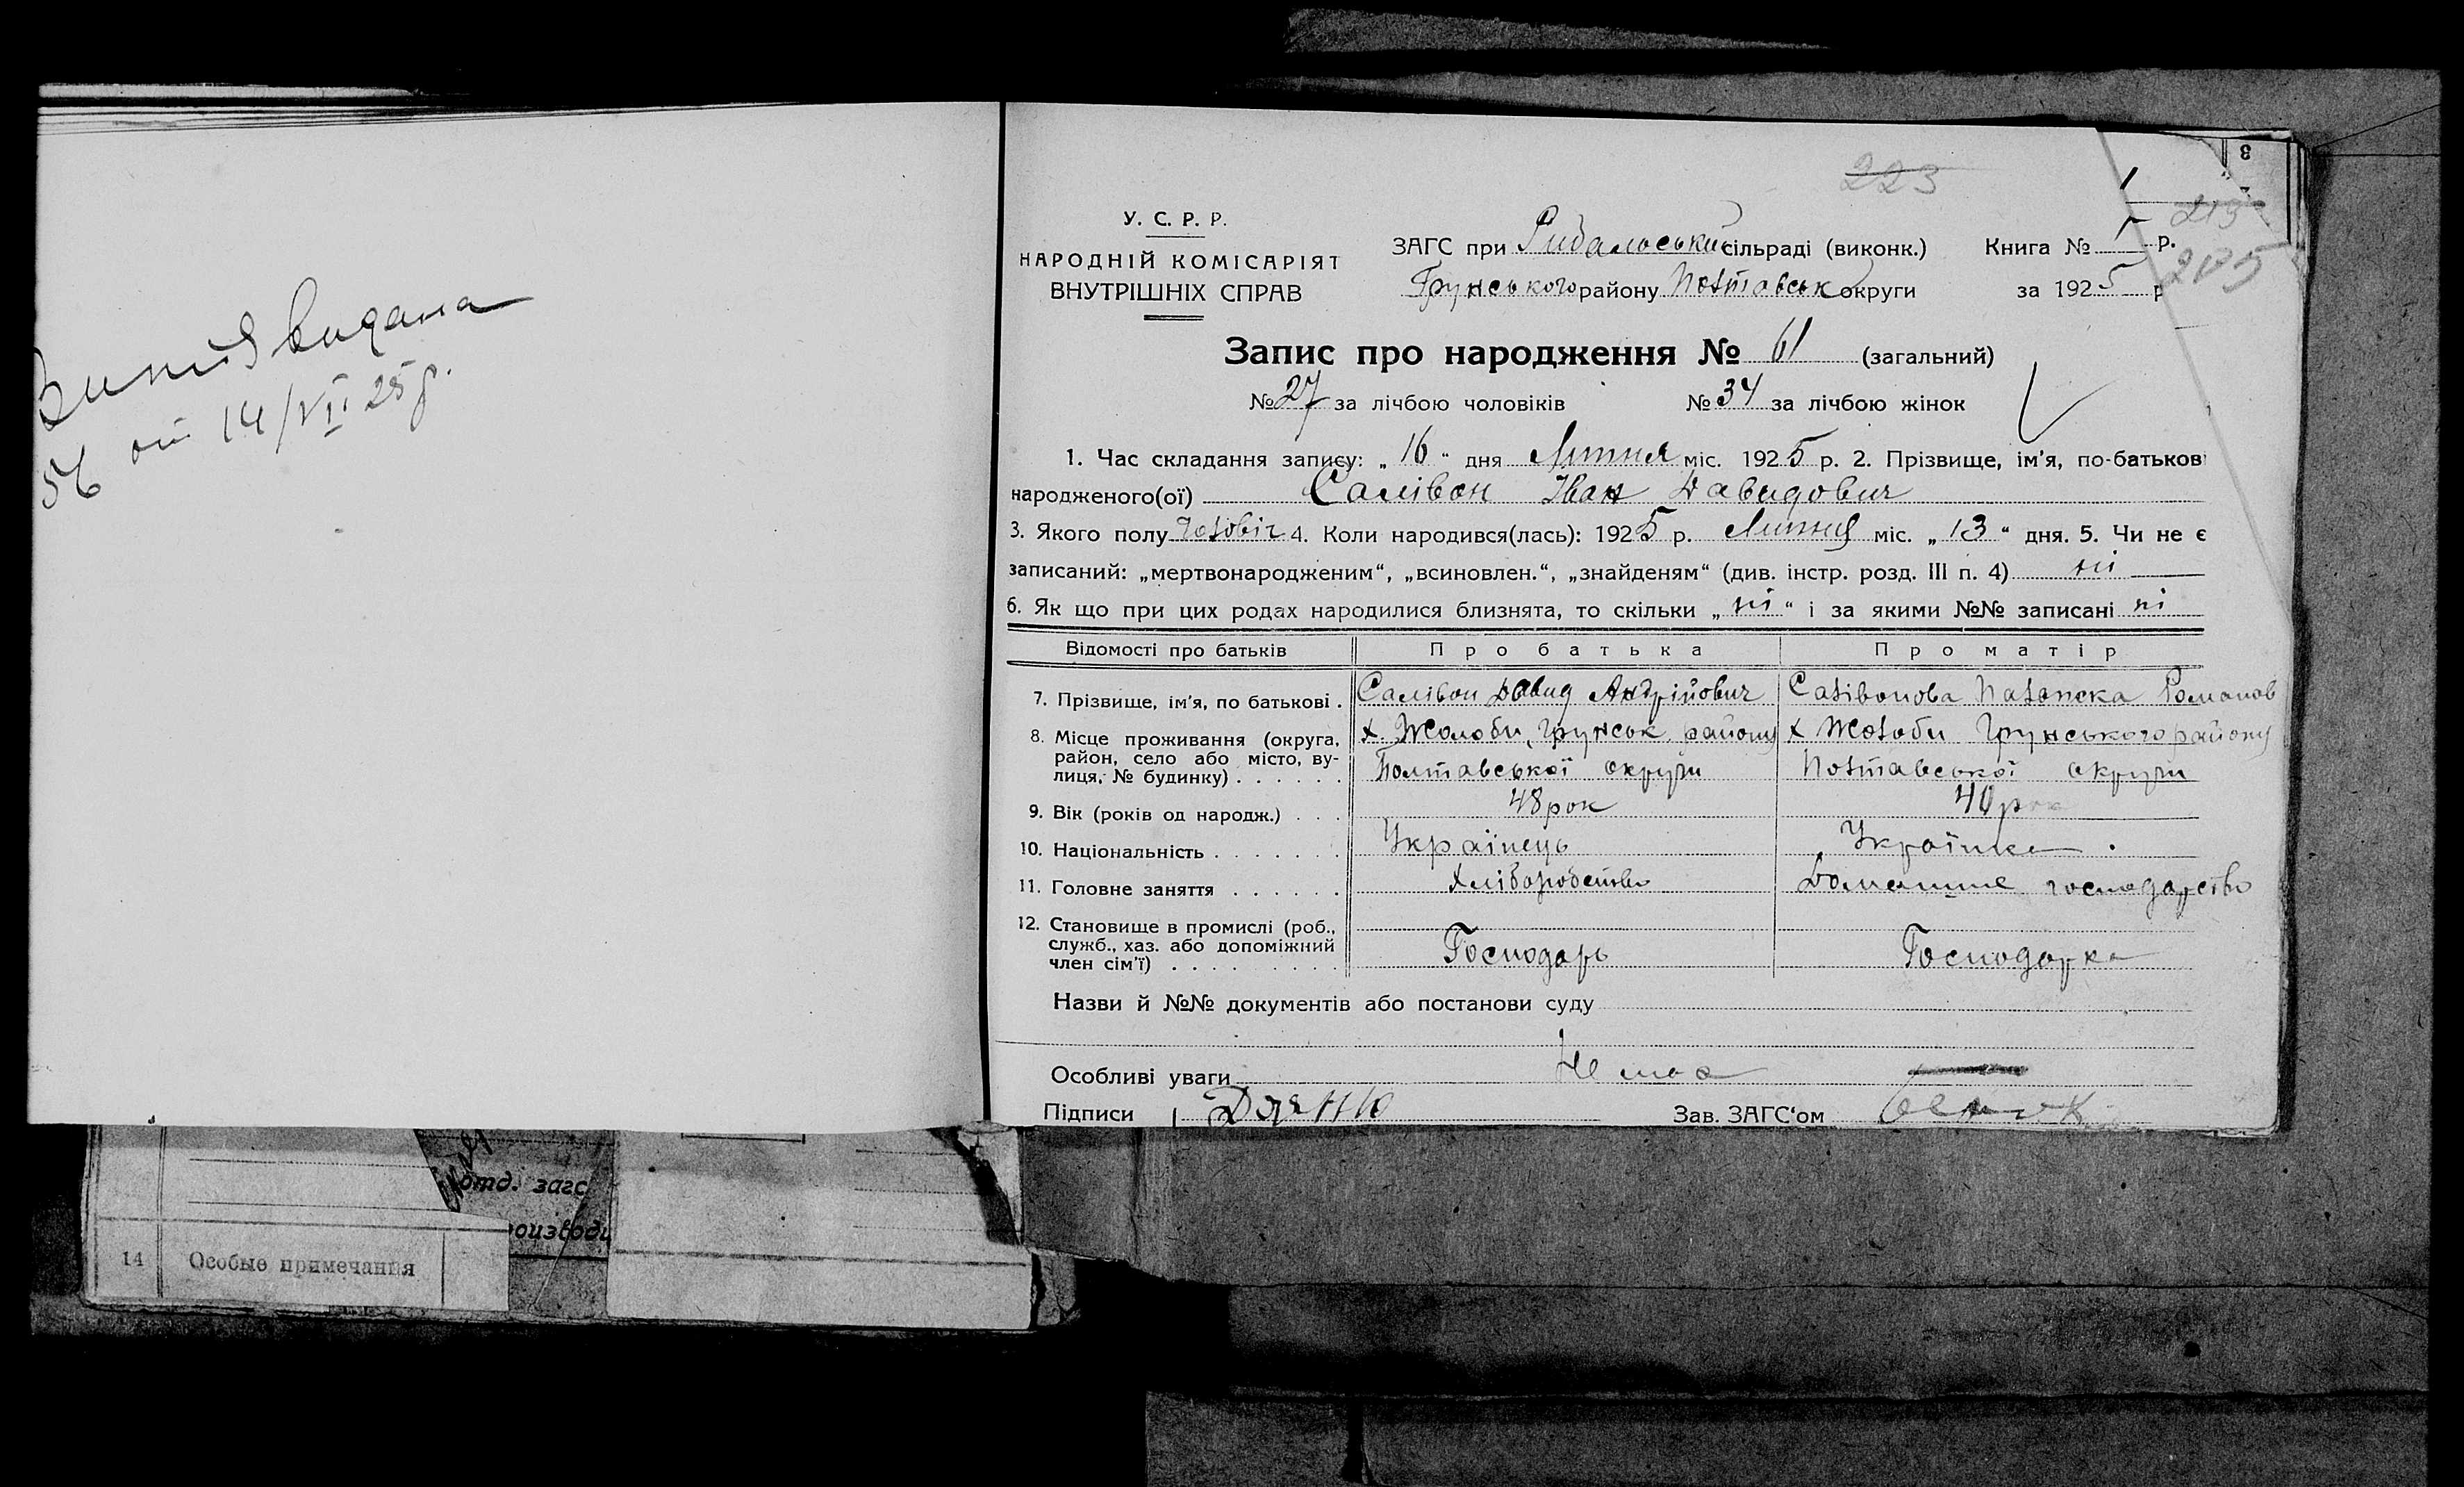 Випись видана
56 от 14/VII 25 р.
223
У. С. Р. Р.
НАРОДНІЙ КОМІСАРІЯТ
ВНУТРІШНІХ СПРАВ
ЗАГС при Рибальський сільраді (виконк.) Книга № 1 р.
Грунського району Полтавськ округи за 1925 р
213
205
Запис про народження № 61 (загальний)
№ 27 за лічбою чоловіків № 34 за лічбою жінок
1. Час складання запису: „ 16 “ дня Липня міс. 1925 р. 2. Прізвище, ім'я, по-батькові
народженого(ої) Салівон Іван Давидович
3. Якого полу Чоловіч 4. Коли народився(лась): 1925 р. Липня міс. „ 13 “ дня. 5. Чи не є
записаний: „мертвонародженим“, „всиновлен.“, „знайденям“ (див. інстр. розд. III п. 4) ні
6. Як що при цих родах народилися близнята, то скільки „ ні “ і за якими №№ записані ні
Відомості про батьків Про батька Про матір
7. Прізвище, ім'я, по батькові . Салівон Давид Андрійович Салівонова Палажка Романов
8. Місце проживання (округа, х. Жолоби, Грунськ. району х Жолоби Грунського району
район, село або місто, ву-
лиця, № будинку) . . . . . . Полтавської округи Полтавської округи
9. Вік (років од народж.) . . . 48 рок 40 рок
10. Національність . . . . . . . Українець Українка .
11. Головне заняття . . . . . . Хліборобство Домашнє господарство
12. Становище в промислі (роб.,
служб., хаз. або допоміжний Господарь Господарка
член сім'ї) . . . . . . . . .
Назви й №№ документів або постанови суду
Особливі уваги Немає
Підписи Зав. ЗАГС'ом
отд. загс
оизводи
14 Особые примечания